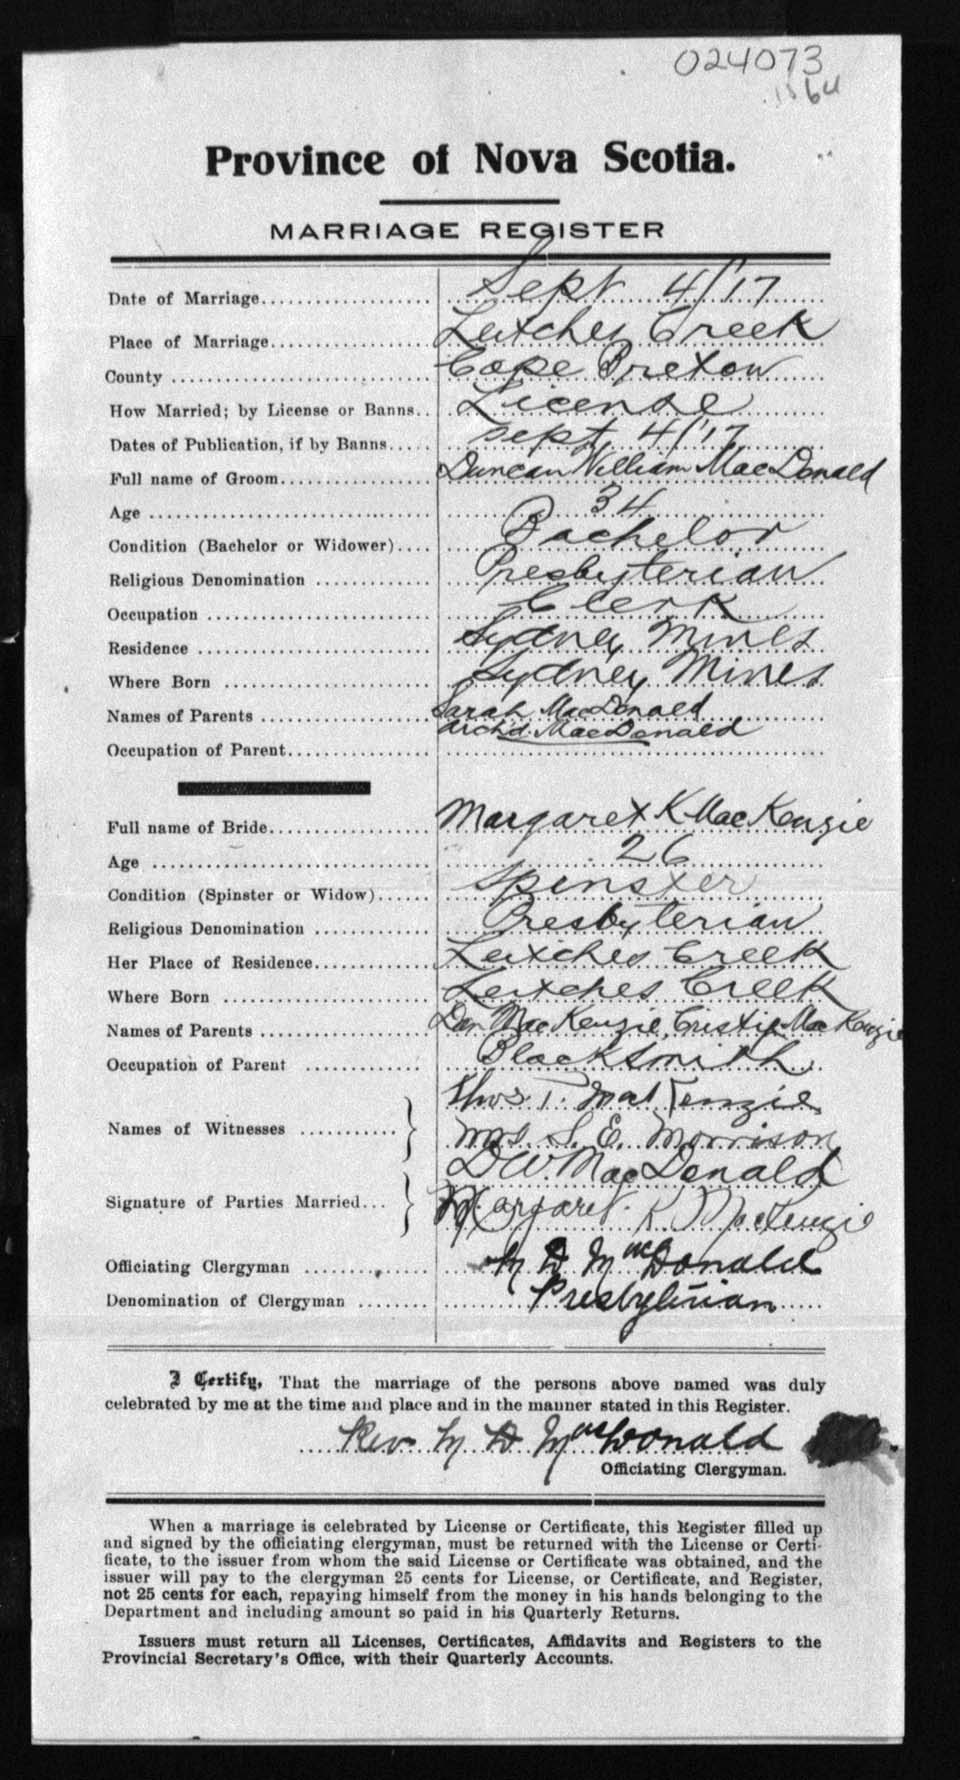 024073
64
Province of Nova Scotia.
MARRIAGE REGISTER
Date of Marriage.................... Sept 4/'17
Place of Marriage.................... Leitches Creek
County .............................. Cape Breton
How Married; by License or Banns.. License
Dates of Publication, if by Banns..... Sept. 4/'17
Full name of Groom.................. Duncan William MacDonald
Age .................................. 34
Condition (Bachelor or Widower).... Bachelor
Religious Denomination .............. Presbyterian
Occupation .......................... Clerk
Residence ........................... Sydney Mines
Where Born ......................... Sydney Mines
Names of Parents .................... Sarah MacDonald
Arch'd. MacDonald
Occupation of Parent..................
Full name of Bride................... Margaret K. MacKenzie
Age .................................. 26
Condition (Spinster or Widow)...... Spinster
Religious Denomination .............. Presbyterian
Her Place of Residence.............. Leitches Creek
Where Born ......................... Leitches Creek
Names of Parents .................... Dan MacKenzie, Cristie MacKenzie
Occupation of Parent .............. Blacksmith
Names of Witnesses ........... Thos. T. MacKenzie
Mrs. S. E. Morrison
Signature of Parties Married... D W. MacDonald
Margaret K MacKenzie
Officiating Clergyman .............. M D McDonald
Denomination of Clergyman ........ Presbyterian
I Certify, That the marriage of the persons above named was duly
celebrated by me at the time and place and in the manner stated in this Register.
Rev M D McDonald
Officiating Clergyman.
When a marriage is celebrated by License or Certificate, this Register filled up
and signed by the officiating clergyman, must be returned with the License or Certi-
ficate, to the issuer from whom the said License or Certificate was obtained, and the
issuer will pay to the clergyman 25 cents for License, or Certificate, and Register,
not 25 cents for each, repaying himself from the money in his hands belonging to the
Department and including amount so paid in his Quarterly Returns.
Issuers must return all Licenses, Certificates, Affidavits and Registers to the
Provincial Secretary's Office, with their Quarterly Accounts.